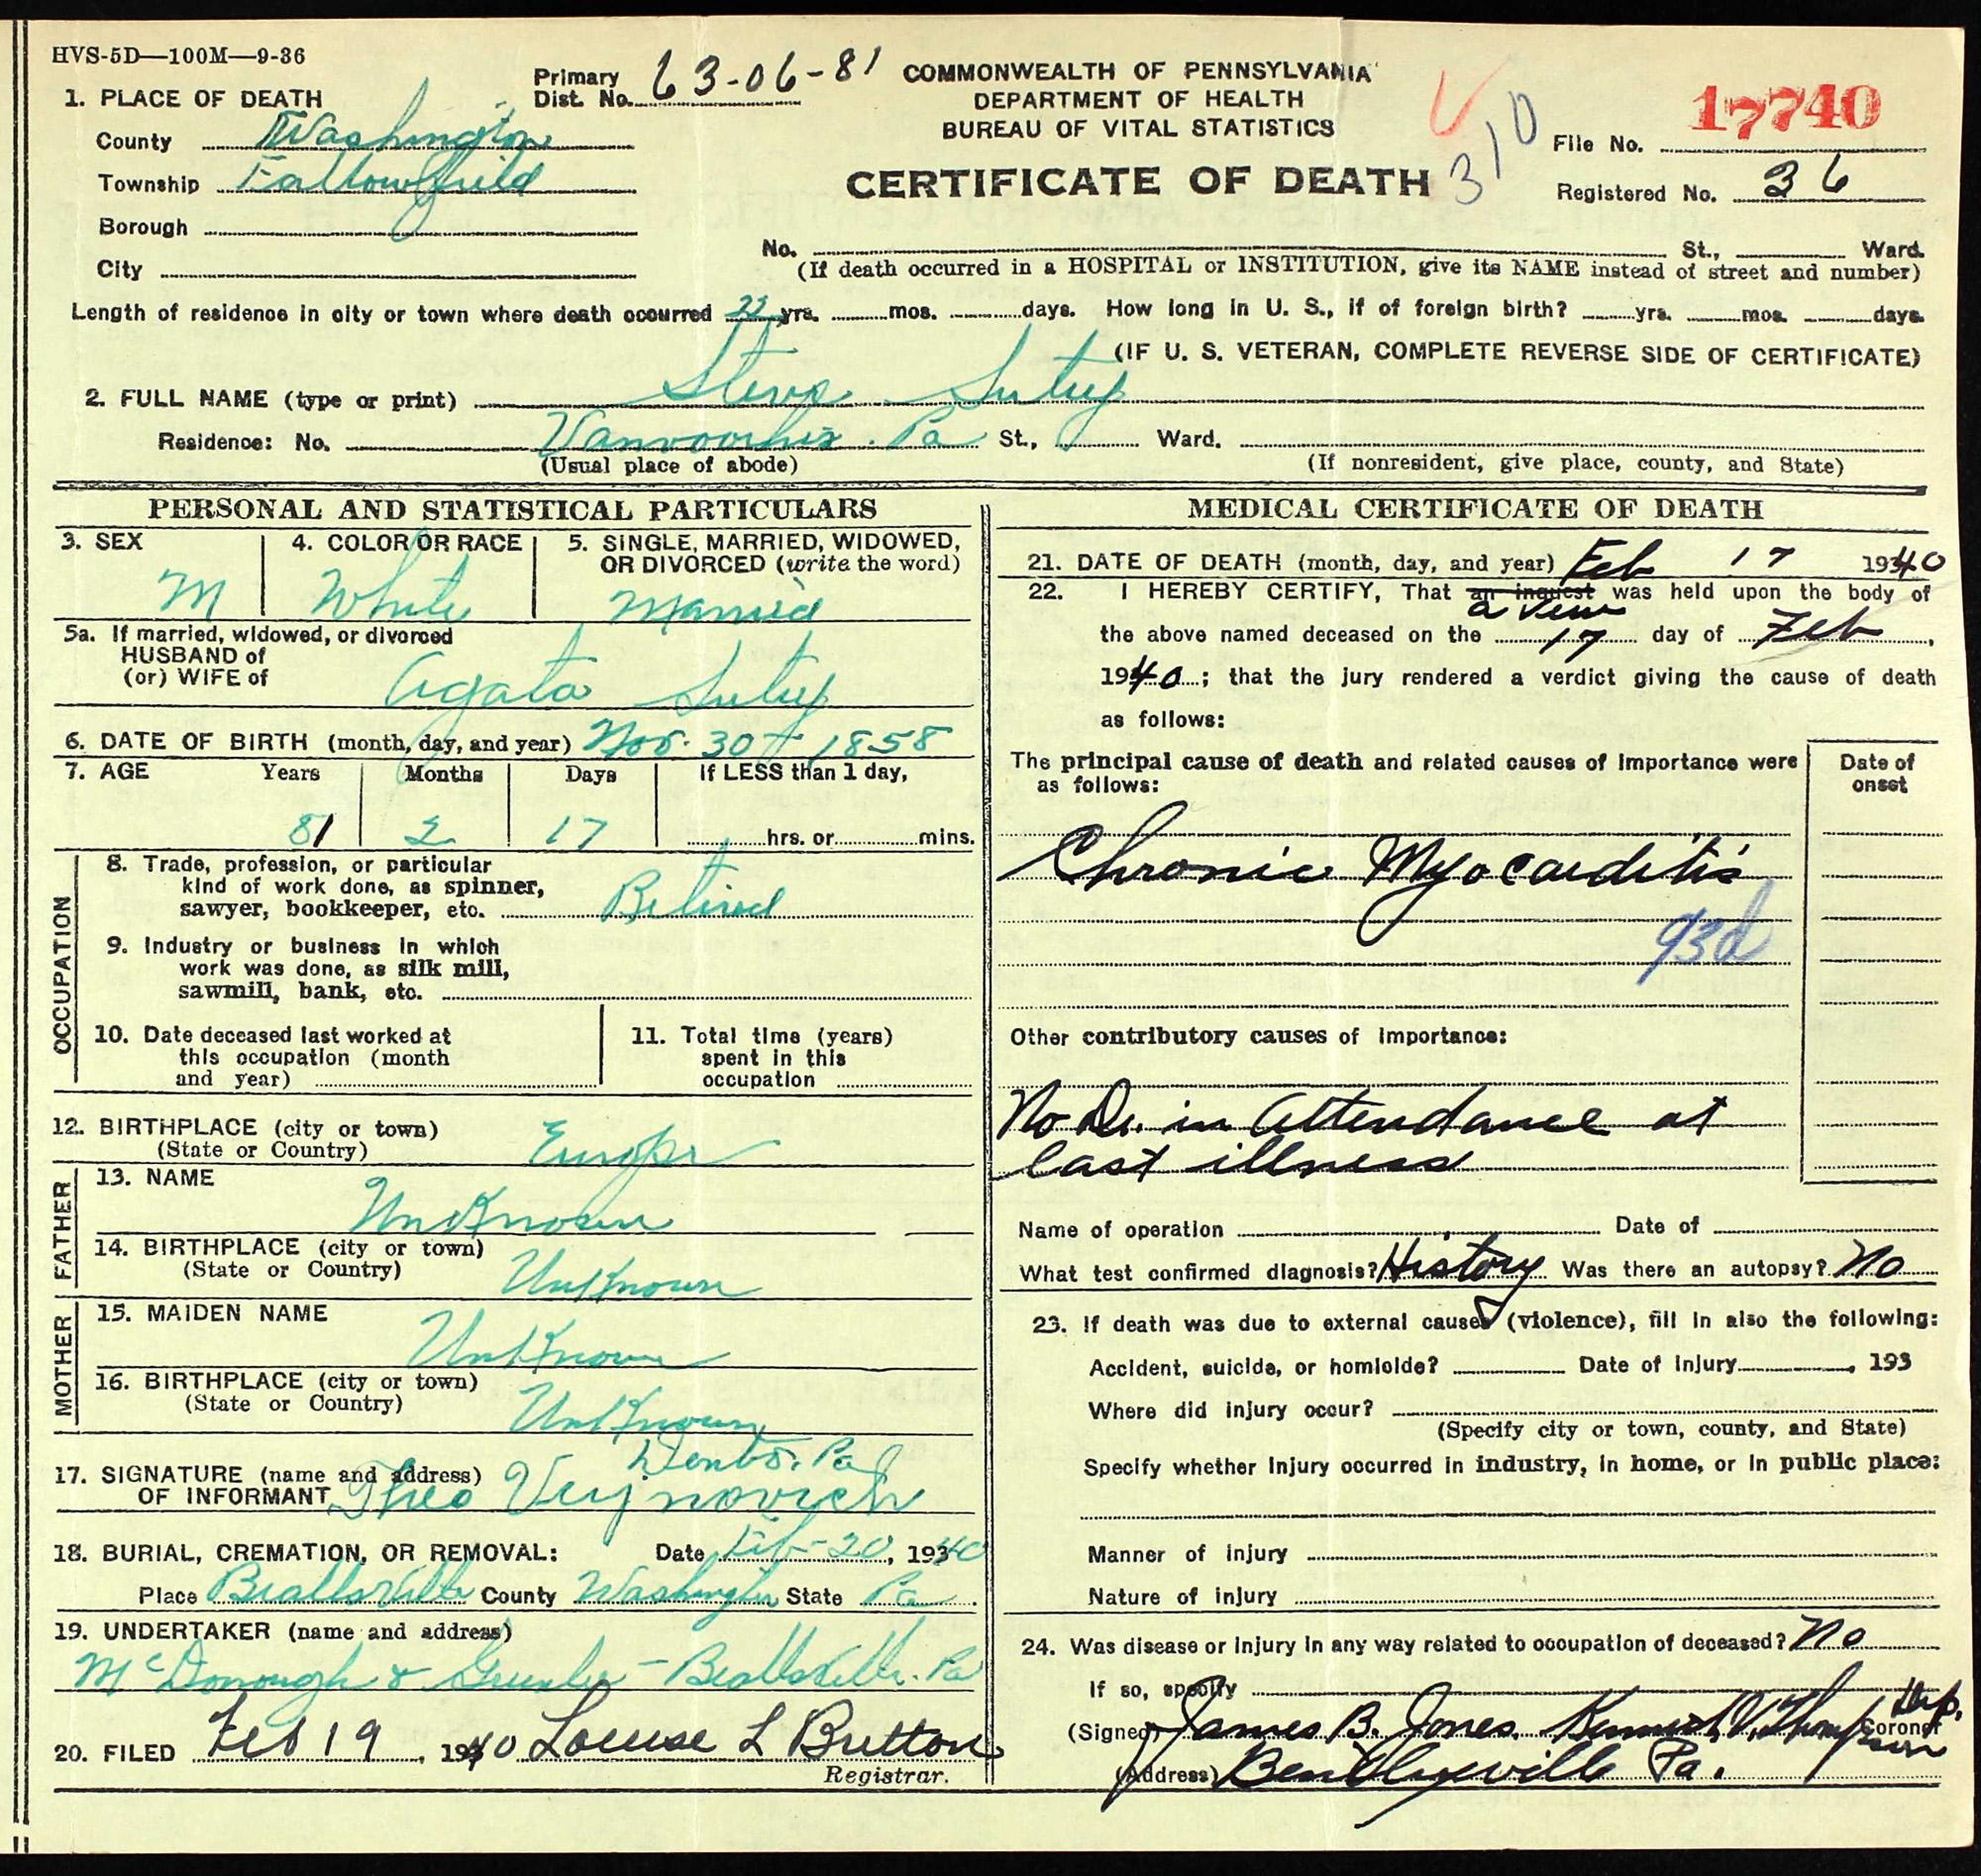 HVS-5D—100M—9-36
Primary Dist. No. 63-06-81
COMMONWEALTH OF PENNSYLVANIA
DEPARTMENT OF HEALTH
BUREAU OF VITAL STATISTICS
CERTIFICATE OF DEATH
310
File No. 17740
Registered No. 36
1. PLACE OF DEATH
County Washington
Township Fallowfield
Borough
City
No. St., Ward.
(If death occurred in a HOSPITAL or INSTITUTION, give its NAME instead of street and number)
Length of residence in city or town where death occurred yrs. mos. days. How long in U. S., if of foreign birth? yrs. mos. days.
(IF U. S. VETERAN, COMPLETE REVERSE SIDE OF CERTIFICATE)
2. FULL NAME (type or print) Steve
Residence: No. Vanvoorhis. Pa St., Ward.
(Usual place of abode) (If nonresident, give place, county, and State)
PERSONAL AND STATISTICAL PARTICULARS
3. SEX 4. COLOR OR RACE 5. SINGLE, MARRIED, WIDOWED,
OR DIVORCED (write the word)
M White Married
5a. If married, widowed, or divorced
HUSBAND of
(or) WIFE of Agata
6. DATE OF BIRTH (month, day, and year) Nov. 30 1858
7. AGE Years Months Days If LESS than 1 day,
81 2 17 hrs. or mins.
OCCUPATION
8. Trade, profession, or particular
kind of work done, as spinner,
sawyer, bookkeeper, etc. Retired
9. Industry or business in which
work was done, as silk mill,
sawmill, bank, etc.
10. Date deceased last worked at
this occupation (month
and year)
11. Total time (years)
spent in this
occupation
12. BIRTHPLACE (city or town)
(State or Country) Europe
FATHER
13. NAME
Unknown
14. BIRTHPLACE (city or town)
(State or Country) Unknown
MOTHER
15. MAIDEN NAME
Unknown
16. BIRTHPLACE (city or town)
(State or Country) Unknown
Denbo. Pa
17. SIGNATURE (name and address)
OF INFORMANT Theo Vujnovich
18. BURIAL, CREMATION, OR REMOVAL: Date Feb-20, 1940
Place Beallsville County Washington State Pa.
19. UNDERTAKER (name and address)
McDonough & - Beallsville. Pa
20. FILED Feb 19, 1940 Louise L Britton
Registrar.
MEDICAL CERTIFICATE OF DEATH
21. DATE OF DEATH (month, day, and year) Feb 17 1940
22. I HEREBY CERTIFY, That an inquest was held upon the body of
a view
the above named deceased on the 17 day of Feb,
1940; that the jury rendered a verdict giving the cause of death
as follows:
The principal cause of death and related causes of importance were
as follows:
Date of
onset
Chronic Myocarditis
93d
Other contributory causes of importance:
No Dr. in attendance at
last illness
Name of operation Date of
What test confirmed diagnosis? History Was there an autopsy? No
23. If death was due to external causes (violence), fill in also the following:
Accident, suicide, or homicide? Date of injury, 193
Where did injury occur?
(Specify city or town, county, and State)
Specify whether injury occurred in industry, in home, or in public place:
Manner of injury
Nature of injury
24. Was disease or injury in any way related to occupation of deceased? No
If so, specify
(Signed) James B. Jones. Thompson Dep. Coroner
(Address) Bentleyville Pa.